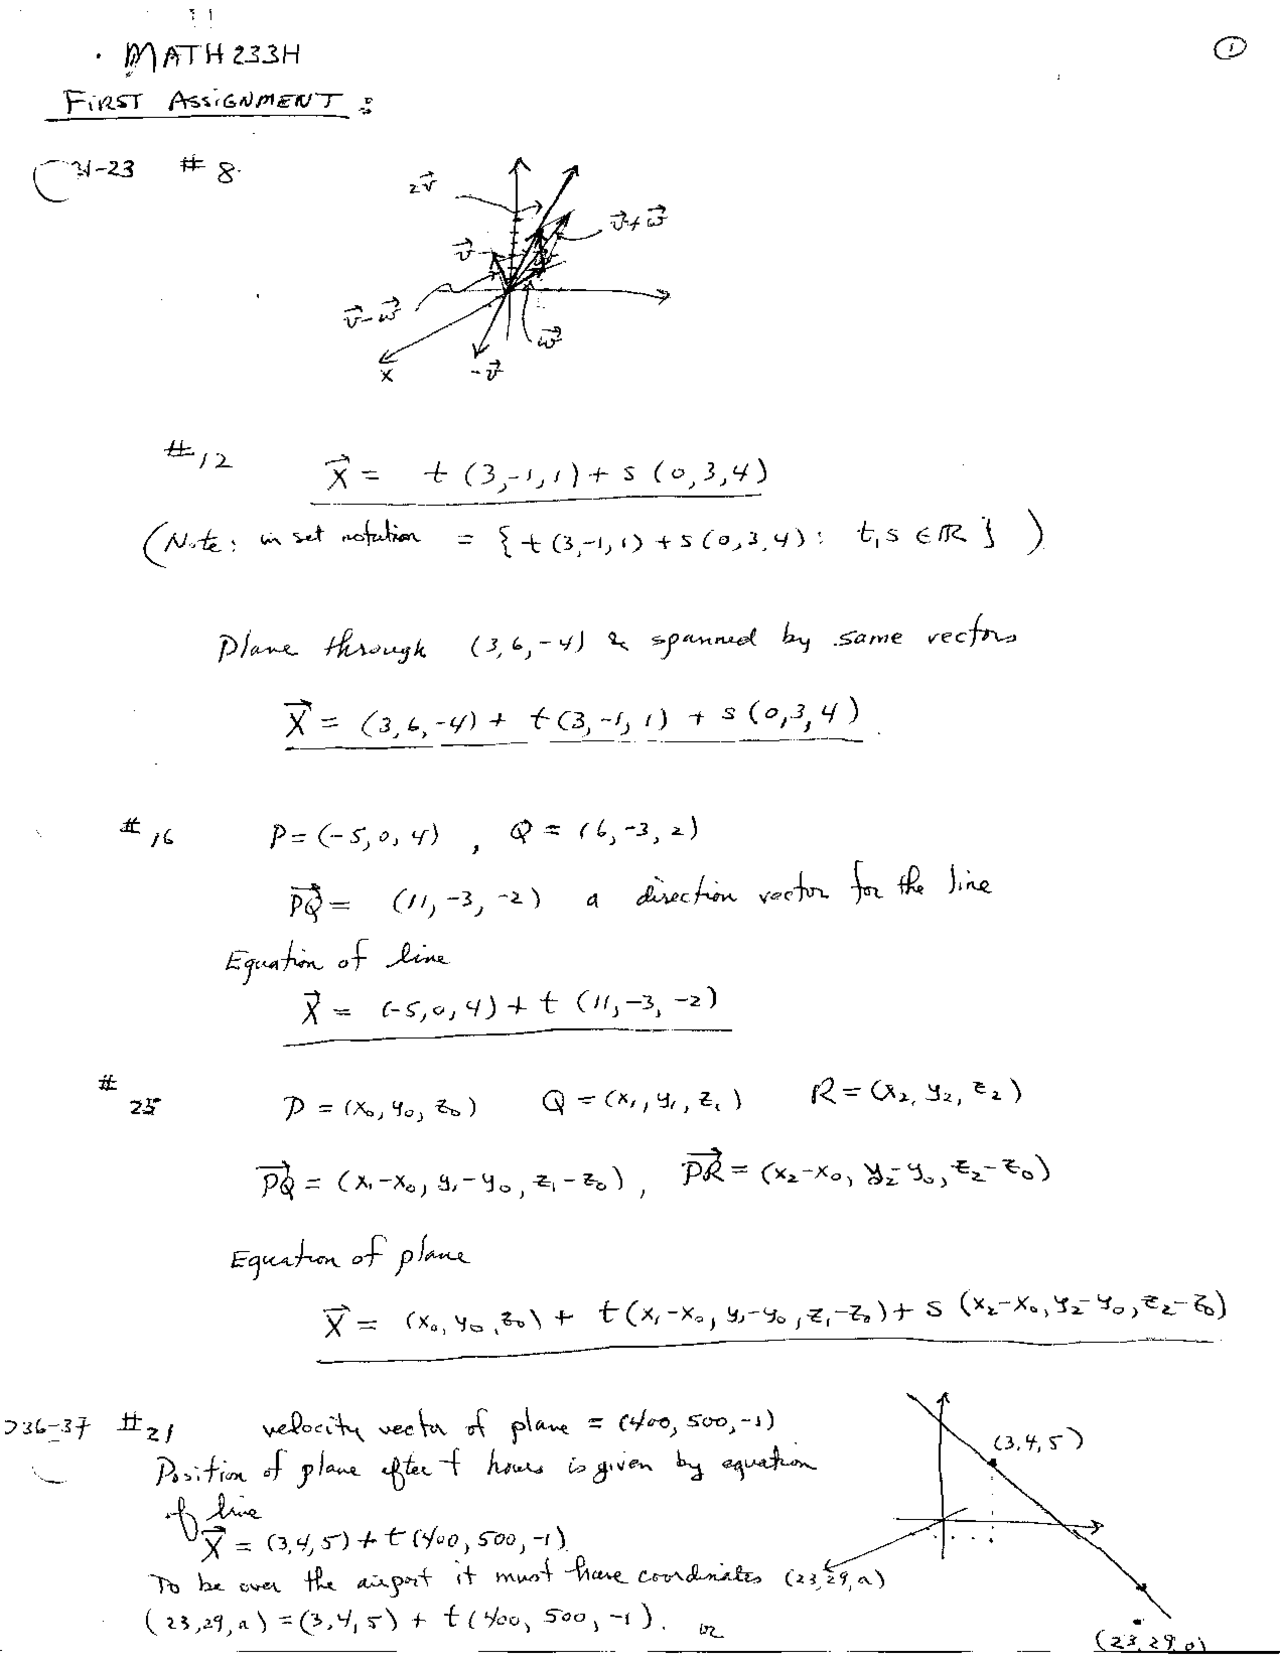 MATH 233H
①
FIRST ASSIGNMENT :
31-23 # 8.
2v⃗
v⃗+w⃗
v⃗
v⃗-w⃗
w⃗
x
-v⃗
#12 X⃗ = t(3,-1,1) + s(0,3,4)
(Note: in set notation = {t(3,-1,1) + s(0,3,4): t,s ∈ ℝ})
Plane through (3,6,-4) & spanned by same vectors
X⃗ = (3,6,-4) + t(3,-1,1) + s(0,3,4)
#16 P = (-5,0,4), Q = (6,-3,2)
PQ⃗ = (11,-3,-2) a direction vector for the line
Equation of line
X⃗ = (-5,0,4) + t(11,-3,-2)
#25 P = (x₀,y₀,z₀) Q = (x₁,y₁,z₁) R = (x₂,y₂,z₂)
PQ⃗ = (x₁-x₀, y₁-y₀, z₁-z₀), PR⃗ = (x₂-x₀, y₂-y₀, z₂-z₀)
Equation of plane
X⃗ = (x₀,y₀,z₀) + t(x₁-x₀, y₁-y₀, z₁-z₀) + s(x₂-x₀, y₂-y₀, z₂-z₀)
36-37 #21 velocity vector of plane = (400, 500, -1)
(3,4,5)
Position of plane after t hours is given by equation
of line
X⃗ = (3,4,5) + t(400,500,-1)
To be over the airport it must have coordinates (23,29,a)
(23,29,a) = (3,4,5) + t(400, 500, -1). or
(23,29,0)